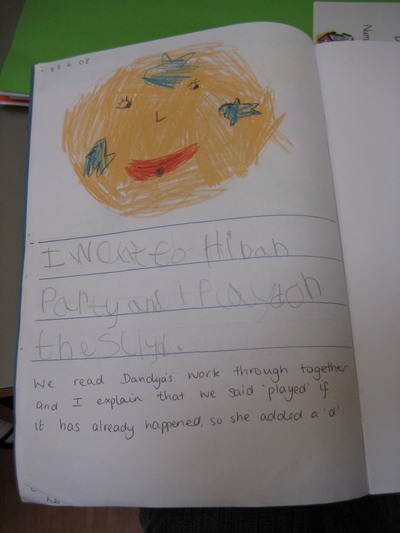 23.6.08
I went to Hiban
Party and I Playdon
the Slyd.
We read Dandya's work through together
and I explain that we said 'played' if
it has already happened. so she added a 'd'